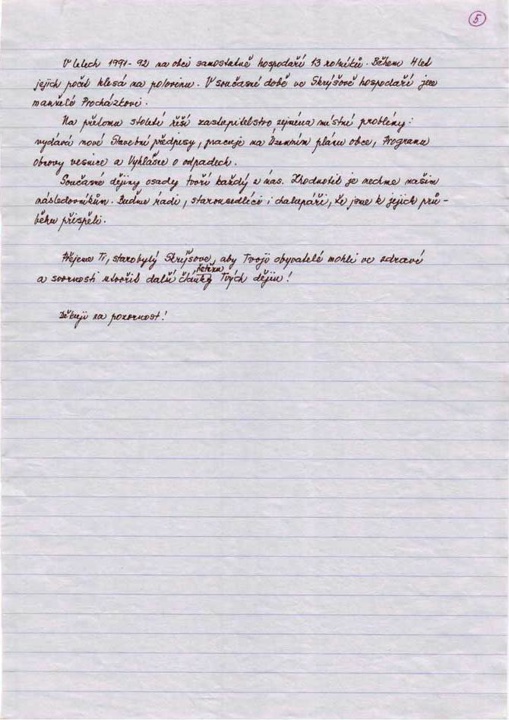 5
V letech 1991-92 na obci samostatně hospodaří 13 rolníků. Během 4 let
jejich počet klesá na polovinu. V současné době ve Skrýšově hospodaří jen
manželé Procházkovi.
Na přelomu století řeší zastupitelstvo zejména místní problémy:
vydává nové Stavební předpisy, pracuje na Územním plánu obce, Programu
obnovy vesnice a Vyhlášce o odpadech.
Současné dějiny osady tvoří každý z nás. Zhodnotit je nechme našim
následovníkům. Buďme rádi, starousedlíci i chalupáři, že jsme k jejich prů-
běhu přispěli.
Přejeme Ti, starobylý Skrýšove, aby Tvoji obyvatelé mohli ve zdraví
a svornosti utvořit další články Tvých dějin!
Děkuji za pozornost!